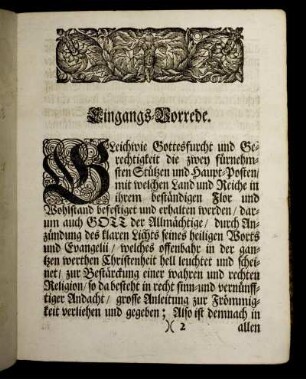 Eingangs-Vorrede.
GLeichwie Gottesfurcht und Ge-
rechtigkeit die zwey fürnehm-
sten Stützen und Haupt-Posten/
mit welchen Land und Reiche in
ihrem beständigen Flor und
Wohlstand befestiget und erhalten werden/ dar-
um auch GOTT der Allmächtige/ durch An-
zündung des klaren Lichts seines heiligen Worts
und Evangelii/ welches offenbahr in der gan-
tzen werthen Christenheit hell leuchtet und schei-
net/ zur Bestärckung einer wahren und rechten
Religion/ so da besteht in recht sinn- und vernünff-
tiger Andacht/ grosse Anleitung zur Frömmig-
keit verliehen und gegeben; Also ist demnach in
)( 2 allen